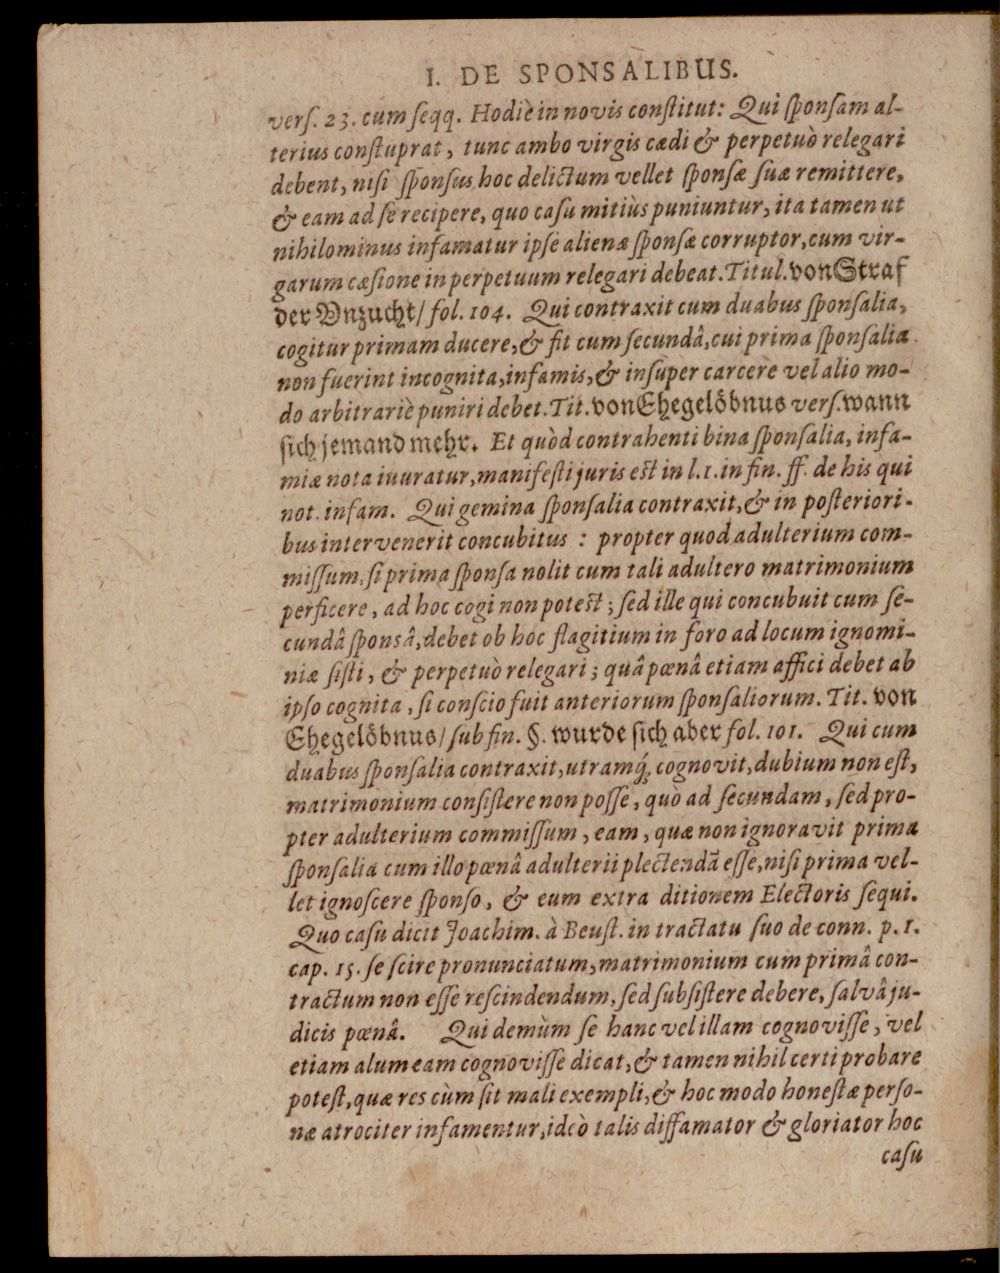 I. DE SPONSALIBUS.
verſ. 23. cum ſeqq. Hodiè in novis conſtitut: Qui ſponſam al-
terius conſtuprat, tunc ambo virgis cædi & perpetuò relegari
debent, niſi ſponſus hoc delictum vellet ſponſæ ſuæ remittere,
& eam ad ſe recipere, quo caſu mitiùs puniuntur, ita tamen ut
nihilominus infamatur ipſe alienæ ſponſæ corruptor, cum vir-
garum cæſione in perpetuum relegari debeat. Titul. von Straf
der Vnzucht/ fol. 104. Qui contraxit cum duabus ſponſalia,
cogitur primam ducere, & fit cum ſecundâ, cui prima ſponſalia
non fuerint incognita, infamis, & inſuper carcere vel alio mo-
do arbitrariè puniri debet. Tit. von Ehegelöbnus verſ. wann
ſich jemand mehr. Et quòd contrahenti bina ſponſalia, infa-
miæ nota inuratur, manifeſti juris eſt in l. 1. in fin. ff. de his qui
not. infam. Qui gemina ſponſalia contraxit, & in poſteriori-
bus intervenerit concubitus : propter quod adulterium com-
miſſum, ſi prima ſponſa nolit cum tali adultero matrimonium
perficere, ad hoc cogi non poteſt; ſed ille qui concubuit cum ſe-
cundâ ſponsâ, debet ob hoc flagitium in foro ad locum ignomi-
niæ ſiſti, & perpetuò relegari; quâ pœnâ etiam affici debet ab
ipſo cognita, ſi conſcio fuit anteriorum ſponſaliorum. Tit. von
Ehegelöbnus/ ſub fin. §. wurde ſich aber fol. 101. Qui cum
duabus ſponſalia contraxit, utramq́; cognovit, dubium non eſt,
matrimonium conſiſtere non poſſe, quò ad ſecundam, ſed pro-
pter adulterium commiſſum, eam, quæ non ignoravit prima
ſponſalia cum illo pœnâ adulterii plectendā eſſe, niſi prima vel-
let ignoſcere ſponſo, & eum extra ditionem Electoris ſequi.
Quo caſu dicit Joachim. à Beuſt. in tractatu ſuo de conn. p. 1.
cap. 15. ſe ſcire pronunciatum, matrimonium cum primâ con-
tractum non eſſe reſcindendum, ſed ſubſiſtere debere, ſalvâ ju-
dicis pœnâ. Qui demùm ſe hanc vel illam cognoviſſe, vel
etiam alum eam cognoviſſe dicat, & tamen nihil certi probare
poteſt, quæ res cùm ſit mali exempli, & hoc modo honeſtæ perſo-
næ atrociter infamentur, ideò talis diffamator & gloriator hoc
caſu